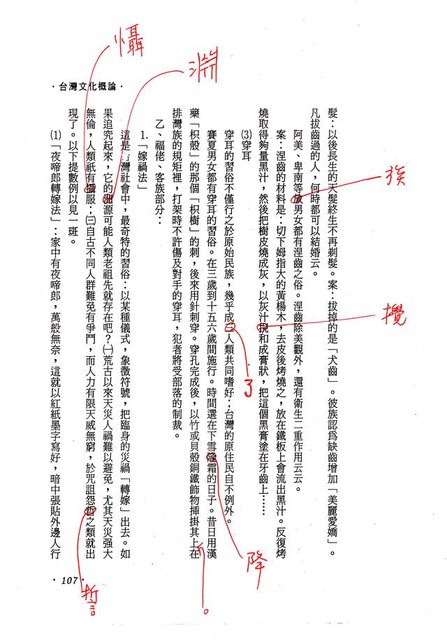 懾
淵
·台灣文化概論·
髮：以後長生的天髮終生不再剃髮。案：拔掉的是「犬齒」。彼族認為缺齒增加「美麗愛嬌」。
凡拔齒過的人，何時都可以結婚云。
阿美、卑南等族男女都有涅齒之俗。涅齒除美觀外，還有衛生二重作用云云。
案：涅齒的材料是：切下姆指大的黃楊木，去皮後烤燒之，放在鐵板上會流出黑汁。反復烤
燒取得夠量黑汁，然後把樹皮燒成灰，以灰汁和成膏狀，把這個黑膏塗在牙齒上……
⑶穿耳
穿耳的習俗不僅行之於原始民族，幾乎成人類共同嗜好；台灣的原住民自不例外。
賽夏男女都有穿耳的習俗。在三歲到十五六歲間施行。時間還在下雪霜的日子。昔日用漢
藥「枳殼」的那個「枳樹」的刺，後來用針刺穿。穿孔完成後，以竹或貝殼銅鐵飾物揷掛其上在
排灣族的規矩裡，打架時不許傷及對手的穿耳，犯者將受部落的制裁。
乙、福佬、客族部分：
1.「嫁禍法」
這是灣社會中，最奇特的習俗：以某種儀式，象徵符號，把臨身的災禍「轉嫁」出去。如
果追究起來，它的源可能人類老祖先就存在吧？㈠荒古以來天災人禍難以避免，尤其天災強大
無倫，人類祇有服；㈡自古不同人群難免有爭鬥，而人力有限天威無窮，於咒詛怨之類就出
現了。以下提數例以見一斑。
⑴「夜啼郎轉嫁法」：家中有夜啼郎，萬般無奈，這就以紅紙墨字寫好，暗中張貼外邊人行
·107·
族
攪
了
降
。
哲言